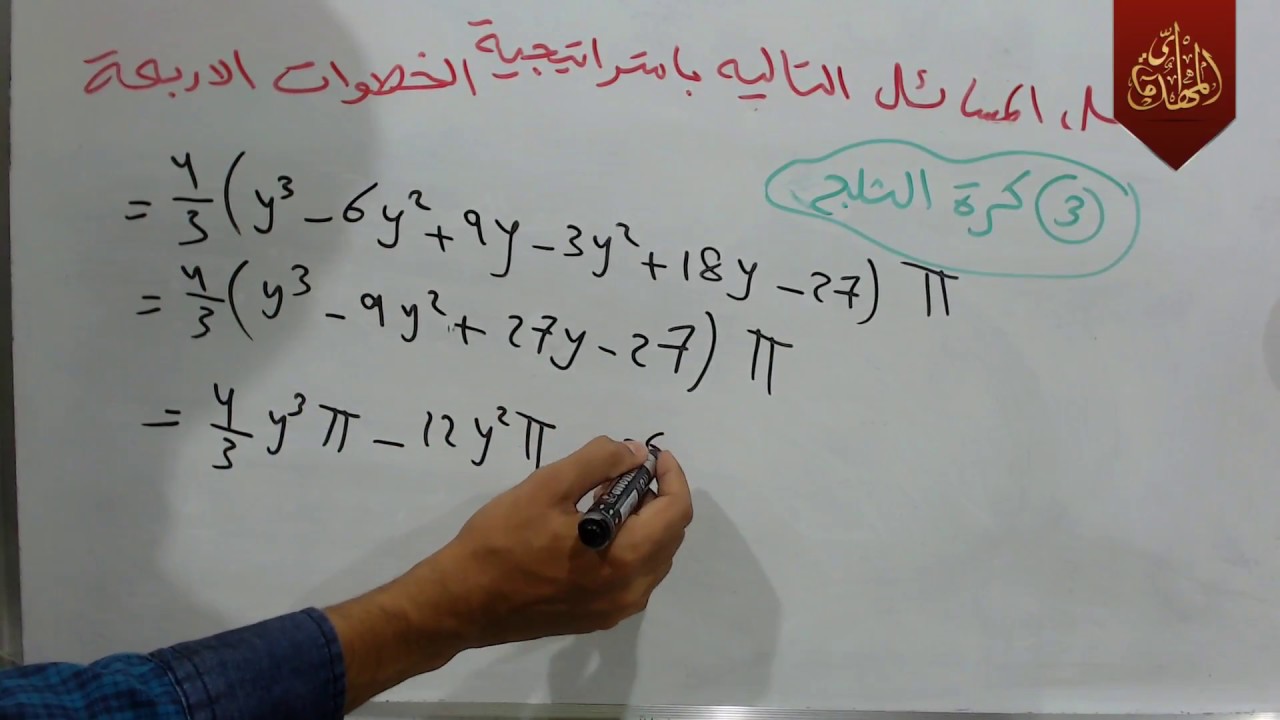 المسائل التاليه باستراتيجية الخطوات الاربعة
3 كرة الثلج
= 4/3 (y³ - 6y² + 9y - 3y² + 18y - 27) π
= 4/3 (y³ - 9y² + 27y - 27) π
= 4/3 y³ π - 12y² π